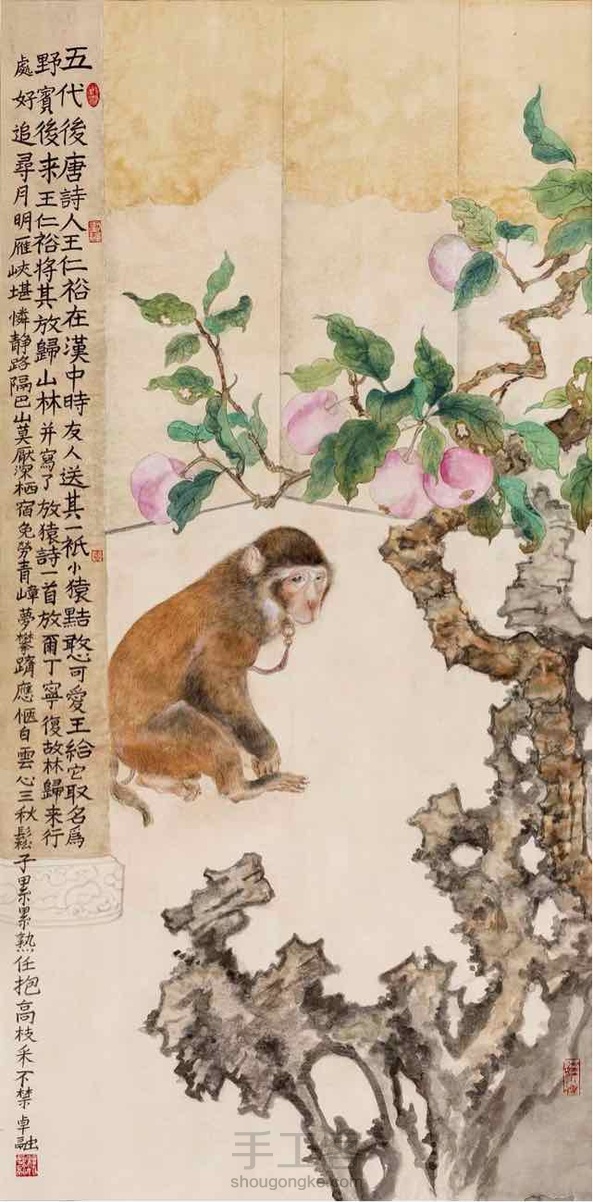 五代後唐詩人王仁裕在漢中時友人送其一衹小猿黠憨可愛王給它取名爲
野賓後来王仁裕將其放歸山林并寫了放猿詩一首放爾丁寧復故林歸来行
處好追尋月明雁峽堪憐静路隔巴山莫厭深栖宿免勞青嶂夢攀躋應愜白雲心三秋鬆子累累熟任抱高枝采不禁 卓融
手工客
shougongke.com